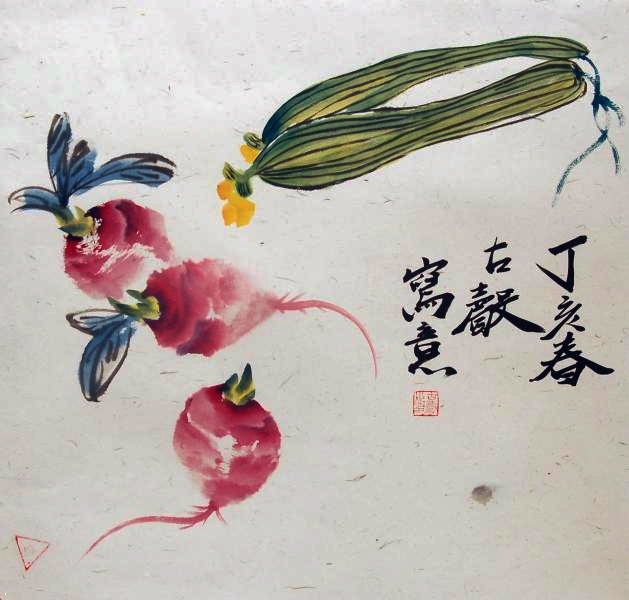 丁亥春
古聲
寫意